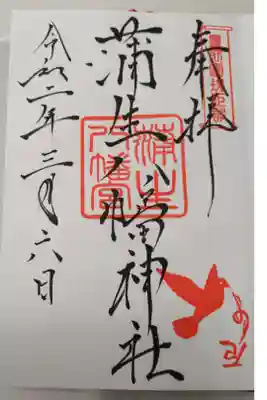 奉拝
蒲生八幡神社
令和二年三月六日